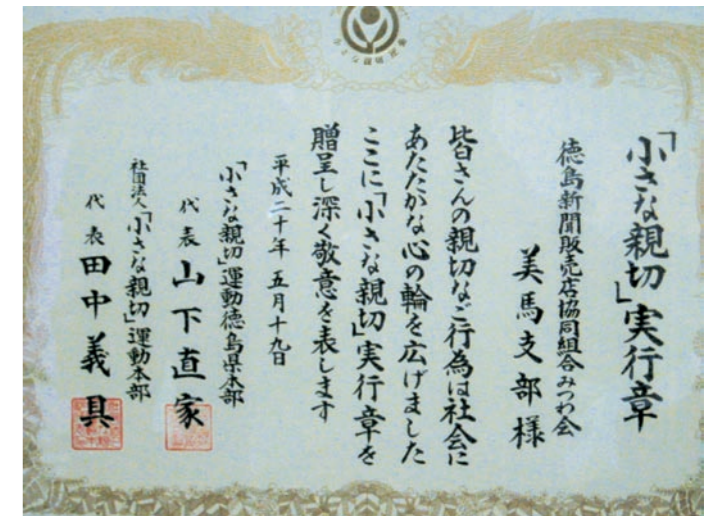 「小さな親切」実行章
徳島新聞販売店協同組合みつわ会
美馬支部様
皆さんの親切なご行為は社会に
あたたかな心の輪を広げました
ここに「小さな親切」実行章を
贈呈し深く敬意を表します
平成二十年五月十九日
「小さな親切」運動徳島県本部
代表 山下直家
社団法人「小さな親切」運動本部
代表 田中義具